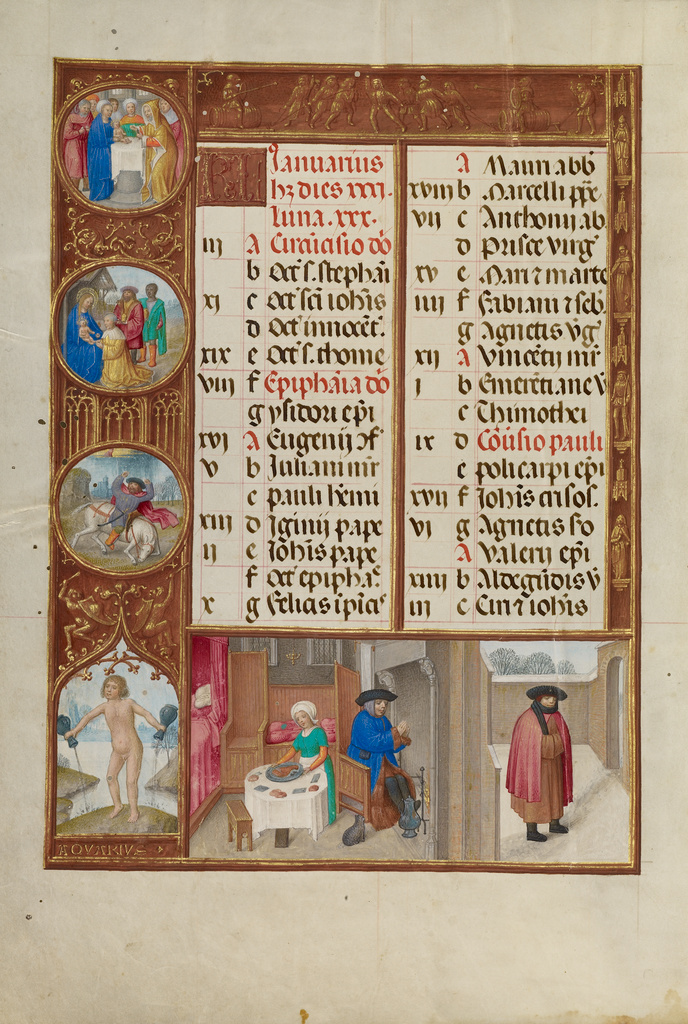 KL Januarius
hz dies xxxi.
Luna. xxx.
iii A Circūcisio dō
b Oct̄ s. stephāi
xi c Oct̄ scī iohīs
d Oct̄ innocēt.
xix e Oct̄ s. thome
viii f Epiphāia dō
g ysidori epī
xvi A Eugenij
v b Iuliani mr̄
c pauli
xiii d Iginij pape
ii e Iohīs pape
f Oct̄ epiphaī
x g Felicis
A Mauri abb̄
xviii b Marcelli pp̄e
vii c Anthonij ab
d prisce virḡ
xv e Mari ⁊ marte
iiii f Fabiani ⁊ seb.
g Agnetis v̄g
xii A Vincētij mr̄
i b Emerētiane v̄
c Thimothei
ix d Cōūsio pauli
e policarpi epī
xvii f Iohīs crisos.
vi g Agnetis so
A Valerij epī
xiiii b Aldegūdis v̄
iii c Ciri ⁊ iohīs
AQVARIVS